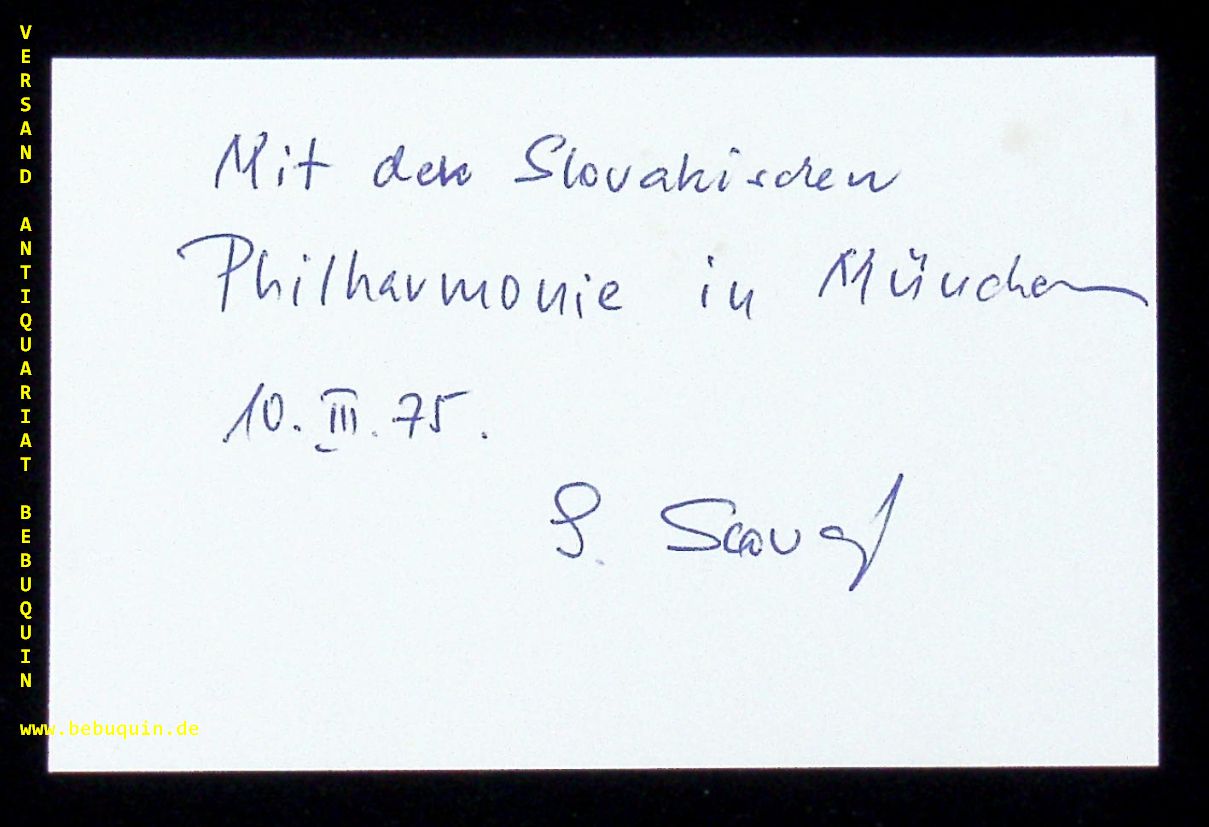 VERSAND ANTIQUARIAT BEBUQUIN
Mit der Slovakischen
Philharmonie in München
10. III. 75.
www.bebuquin.de